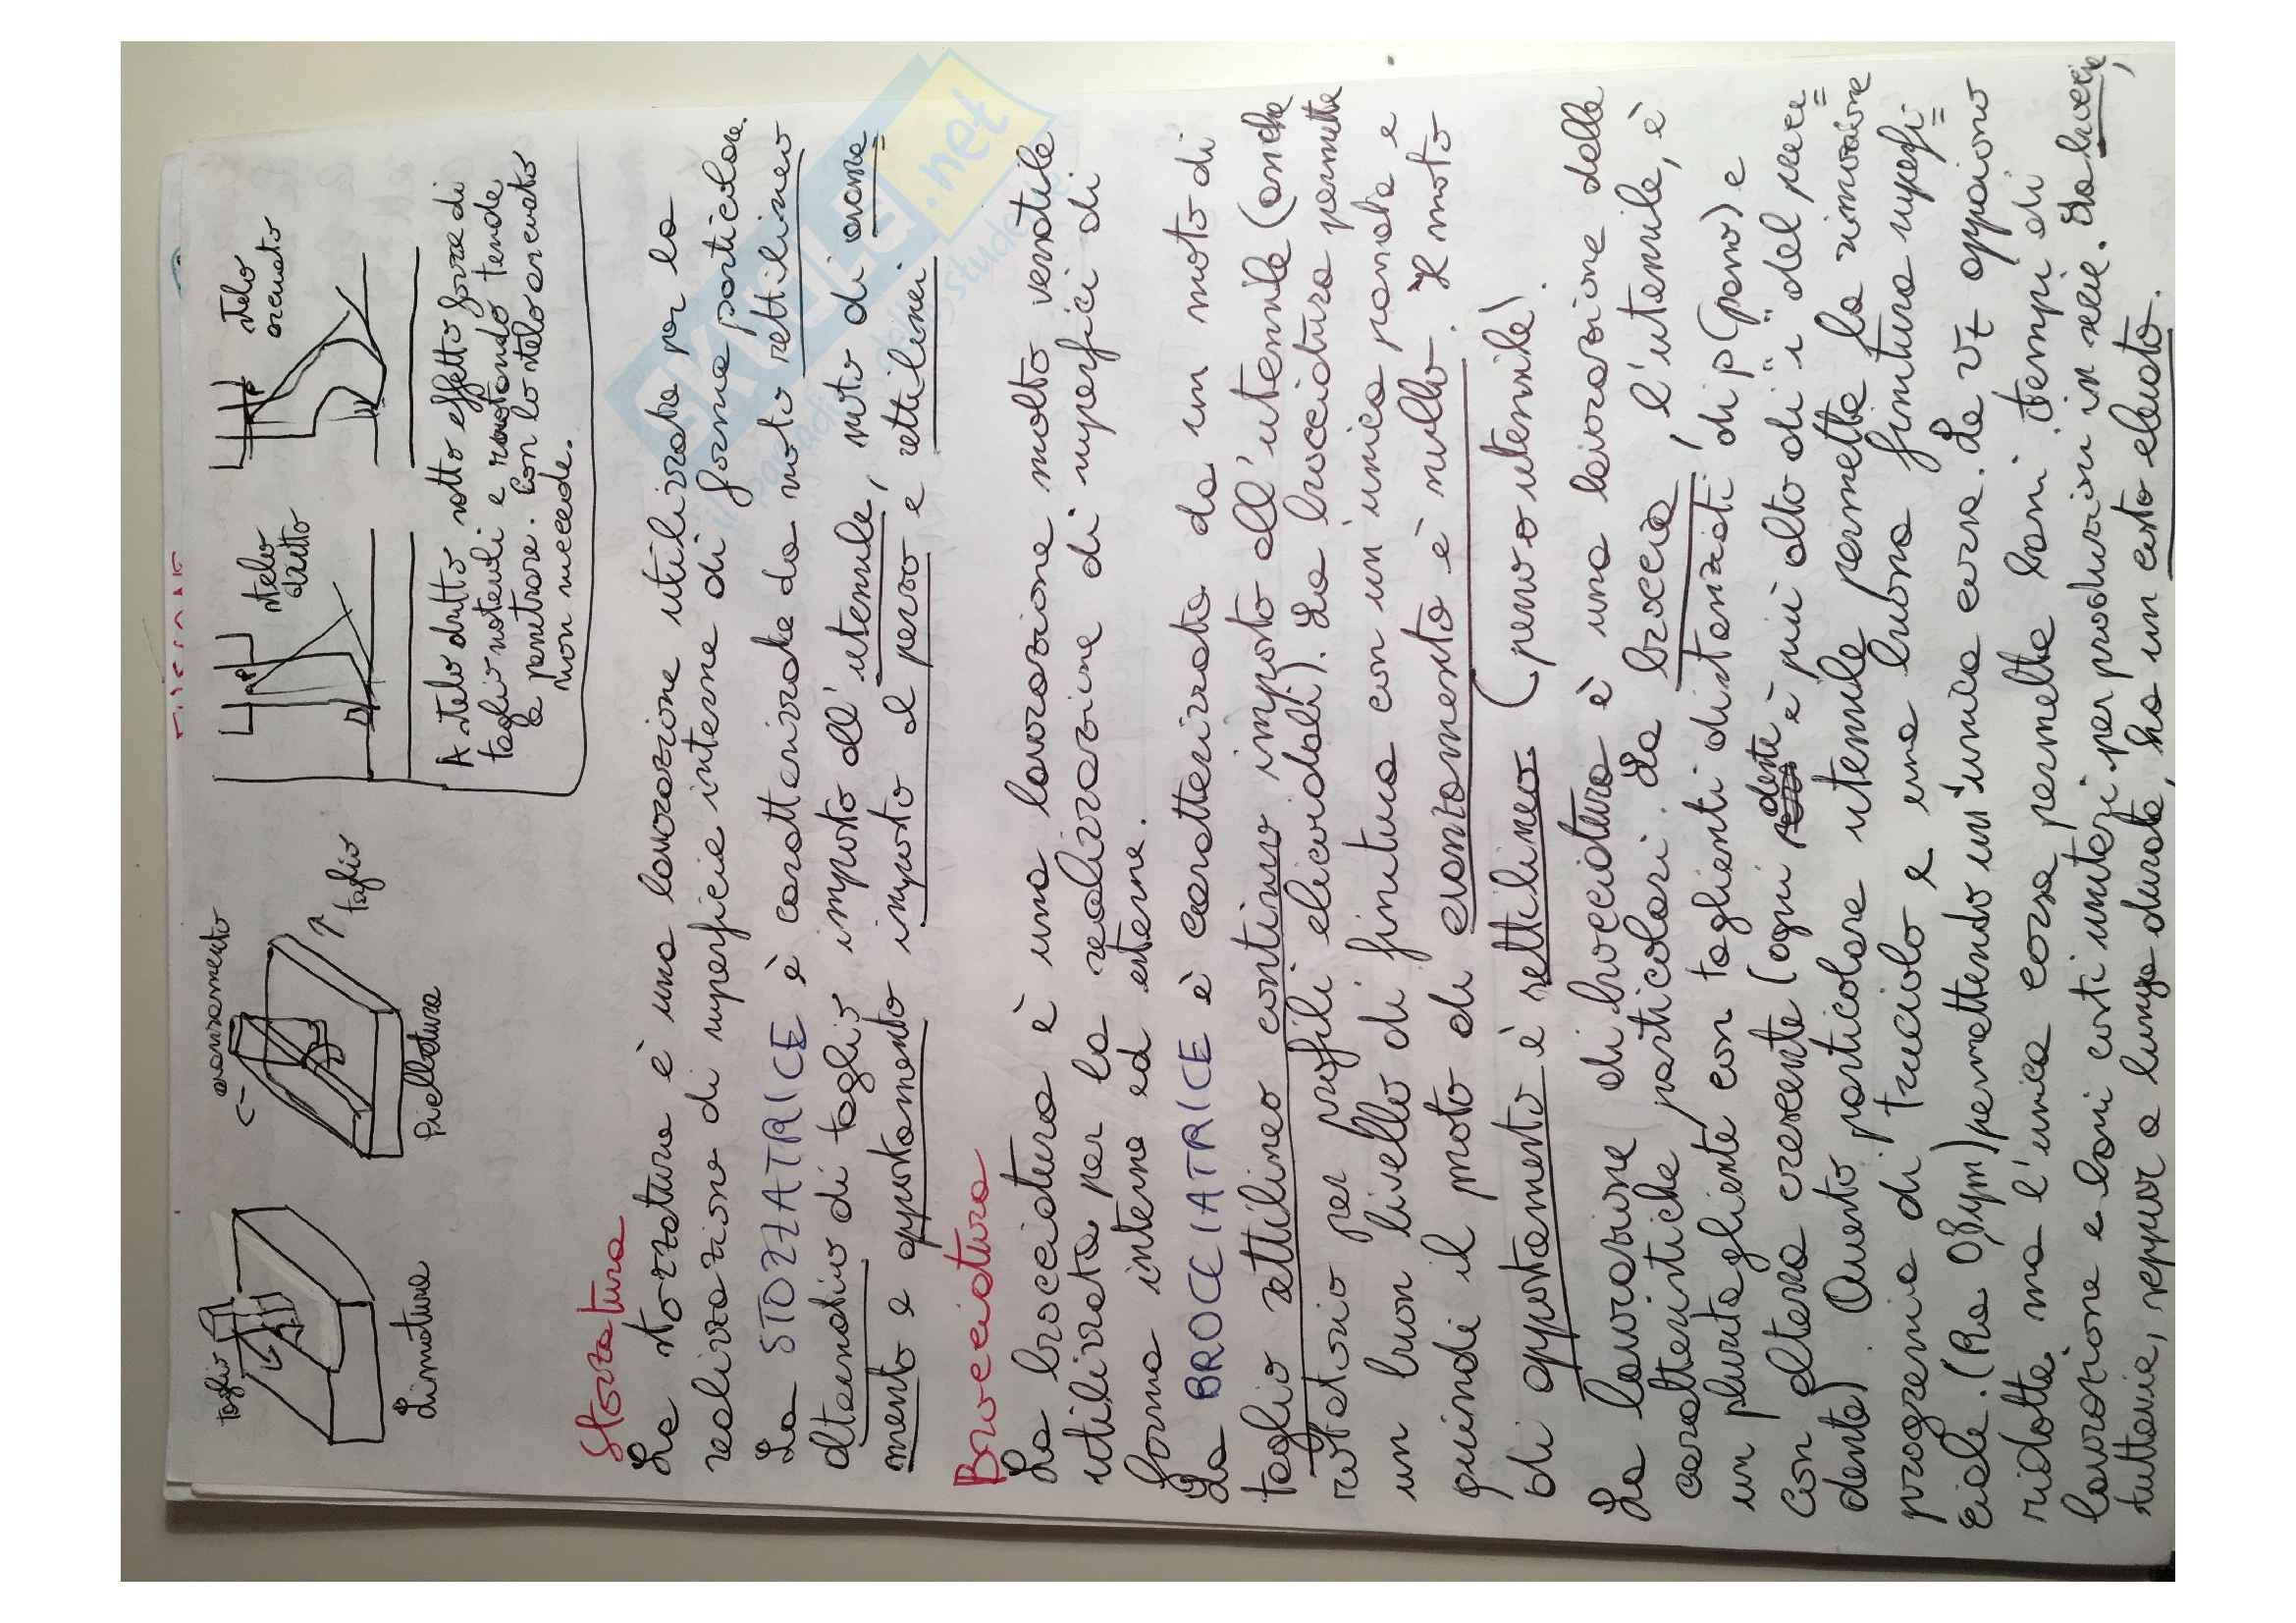 taglio
Limatura
avanzamento
taglio
Piallatura
stelo
dritto
stelo
arcuato
A stelo dritto sotto effetto forze di
taglio notevoli e ruotando tende
a penetrare. Con lo stelo arcuato
non succede.
Stozzatura
La stozzatura è una lavorazione utilizzata per la
realizzazione di superficie interne di forma particolare.
La STOZZATRICE è caratterizzata da moto rettilineo
alternativo di taglio imposto all'utensile, moto di avanza=
mento e appostamento imposto al pezzo e rettilinei
Brocciatura
La brocciatura è una lavorazione molto versatile
utilizzata per la realizzazione di superfici di
forma interna ed esterne.
La BROCCIATRICE è caratterizzata da un moto di
taglio rettilineo continuo imposto all'utensile (anche
rotatorio per profili elicoidali). La brocciatura permette
un buon livello di finitura con un'unica passata e
quindi il moto di avanzamento è nullo. Il moto
di appostamento è rettilineo (pezzo utensile).
La lavorazione di brocciatura è una lavorazione dalle
caratteristiche particolari. La broccia, l'utensile, è
un pluritagliente con taglienti distanziati di p (passo) e
con altezza crescente (ogni dente è più alto di "i" del prece=
dente). Questo particolare utensile permette la rimozione
progressiva di truciolo e una buona finitura superfi=
ciale. (Ra 0,8 μm) permettendo un'unica corsa. Le vt appaiono
ridotte ma l'unica corsa permette bassi tempi di
lavorazione e bassi costi unitari per produzioni in serie. La broccia,
tuttavia, seppur a lunga durata, ha un costo elevato.
SKUOLA.net
il paradiso dello studente